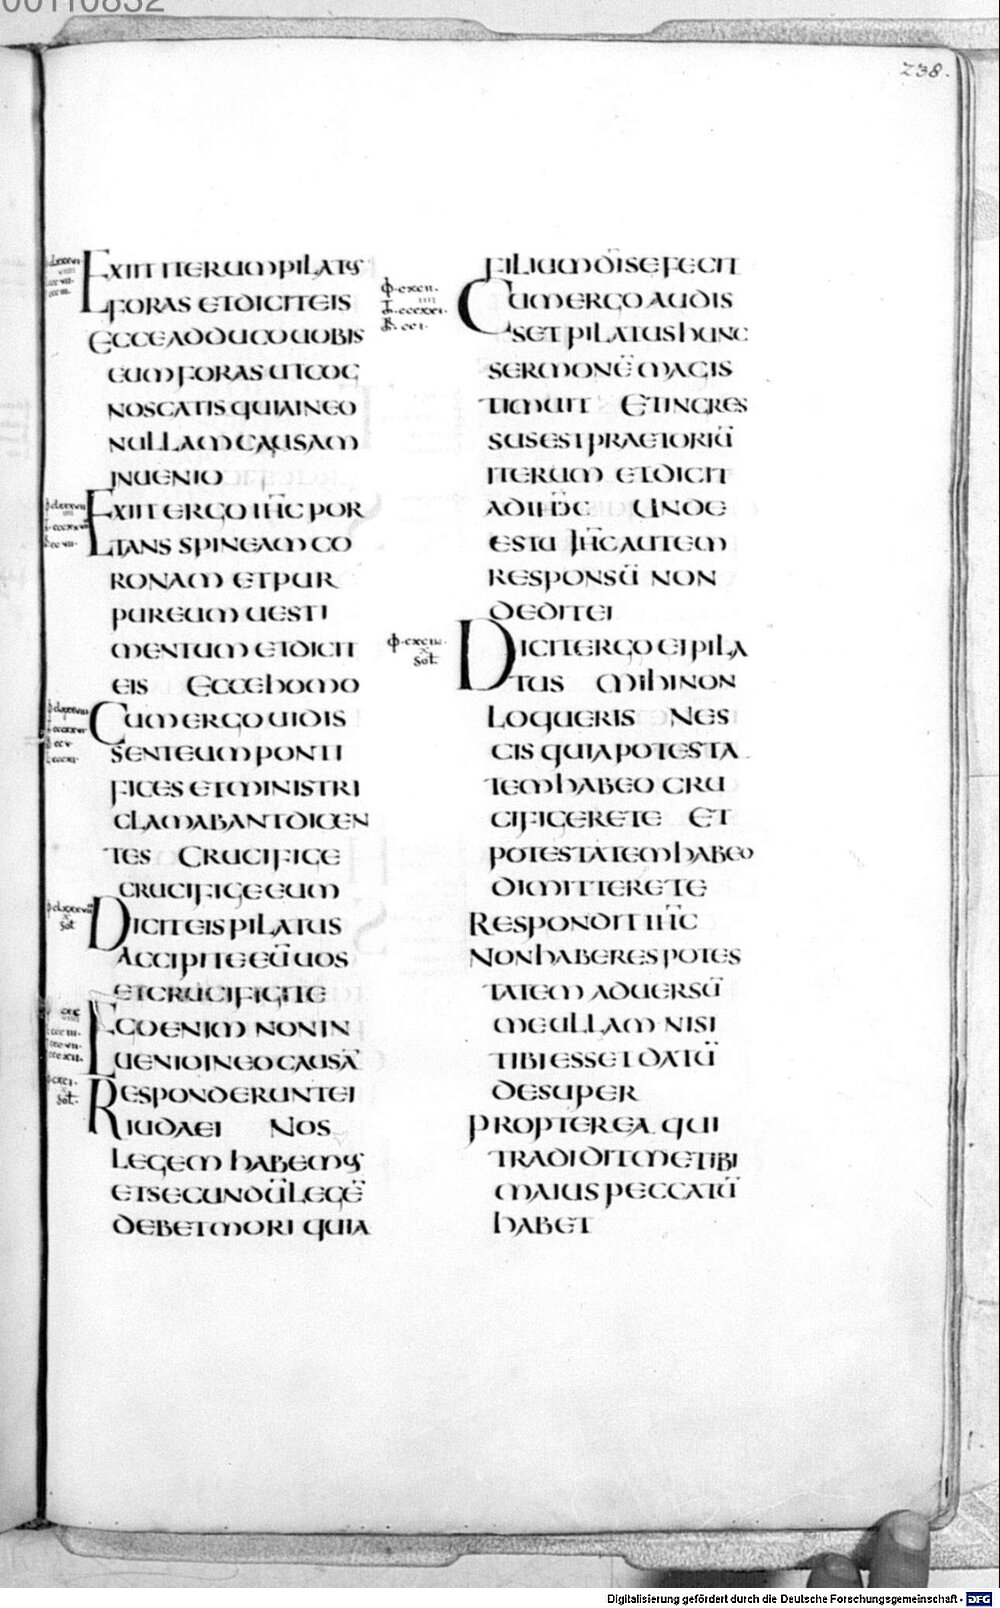 00110832
238.
EXIIT ITERUM PILATUS
FORAS ET DICIT EIS
ECCE ADDUCO UOBIS
EUM FORAS UT COG
NOSCATIS QUIA IN EO
NULLAM CAUSAM
INUENIO
EXIIT ERGO IH̄C POR
TANS SPINEAM CO
RONAM ET PUR
PUREUM UESTI
MENTUM ET DICIT
EIS ECCE HOMO
CUM ERGO UIDIS
SENT EUM PONTI
FICES ET MINISTRI
CLAMABANT DICEN
TES CRUCIFIGE
CRUCIFIGE EUM
DICIT EIS PILATUS
ACCIPITE EŪ UOS
ET CRUCIFIGITE
EGO ENIM NON IN
UENIO IN EO CAUSĀ
RESPONDERUNT EI
IUDAEI NOS
LEGEM HABEMUS
ET SECUNDŪ LEGĒ
DEBET MORI QUIA
FILIUM D̄I SE FECIT
φ·cxcii·
CUM ERGO AUDIS
SET PILATUS HUNC
SERMONĒ MAGIS
TIMUIT ET INGRES
SUS EST PRAETORIŪ
ITERUM ET DICIT
AD IH̄C UNDE
ES TU IH̄C AUTEM
RESPONSŪ NON
DEDIT EI
DICIT ERGO EI PILA
TUS MIHI NON
LOQUERIS NES
CIS QUIA POTESTA
TEM HABEO CRU
CIFIGERE TE ET
POTESTATEM HABEO
DIMITTERE TE
RESPONDIT IH̄C
NON HABERES POTES
TATEM ADUERSŪ
ME ULLAM NISI
TIBI ESSET DATŪ
DESUPER
PROPTEREA QUI
TRADIDIT ME TIBI
MAIUS PECCATŪ
HABET
Digitalisierung gefördert durch die Deutsche Forschungsgemeinschaft - DFG